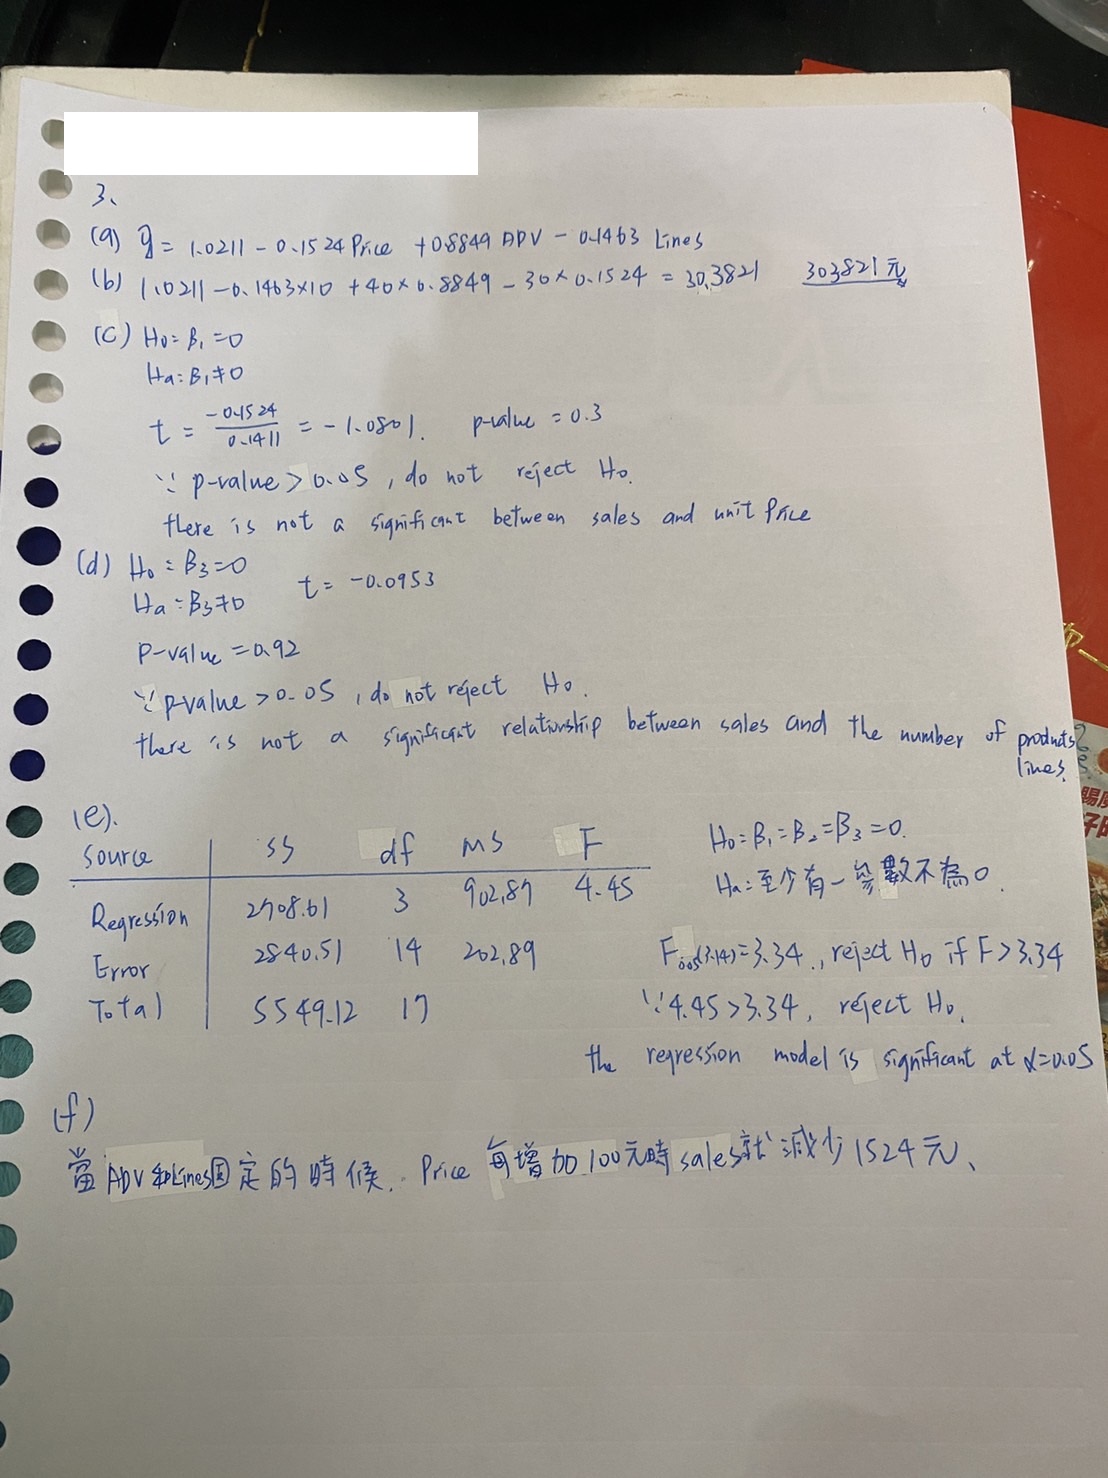 3、
(a) ŷ = 1.0211 - 0.1524 Price + 0.8849 ADV - 0.1463 Lines
(b) 1.0211 - 0.1463×10 + 40×0.8849 - 30×0.1524 = 30.3821 303821元
(c) H₀ = β₁ = 0
Ha = β₁ ≠ 0
t = -0.1524 / 0.1411 = -1.0801. p-value = 0.3
∵ p-value > 0.05, do not reject H₀.
there is not a significant between sales and unit Price
(d) H₀ = β₃ = 0 t = -0.0953
Ha = β₃ ≠ 0
P-value = 0.92
∵ p-value > 0.05, do not reject H₀.
there is not a significant relationship between sales and the number of products
lines.
(e).
Source SS df MS F
Regression 2708.61 3 902.87 4.45
Error 2840.51 14 202.89
Total 5549.12 17
H₀ = β₁ = β₂ = β₃ = 0.
Ha = 至少有一參數不為0.
F0.05(3.14) = 3.34., reject H₀ if F > 3.34
∵ 4.45 > 3.34, reject H₀.
the regression model is significant at α = 0.05
(f)
當ADV和Lines固定的時候. Price 每增加100元時sales就減少1524元、